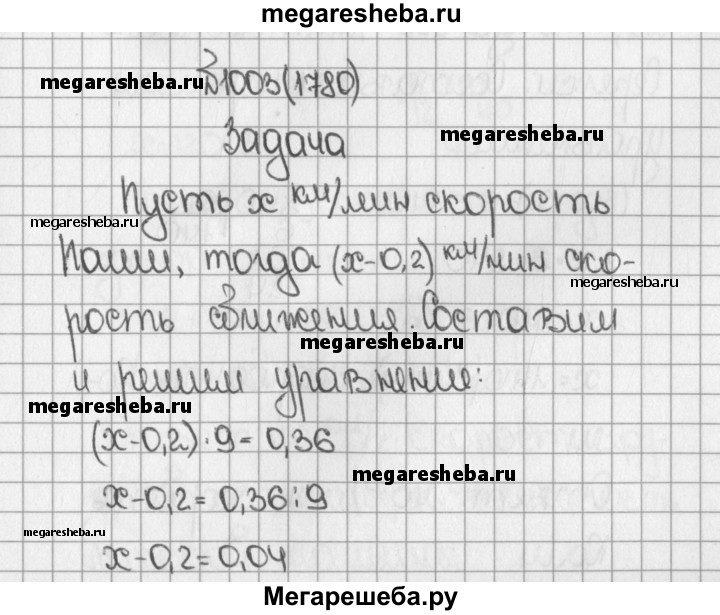 megaresheba.ru
№1003(1780)
megaresheba.ru
megaresheba.ru
Задача
Пусть x км/мин скорость
megaresheba.ru
Наши, тогда (x-0,2) км/мин ско-
megaresheba.ru
рость сближения. Составим
megaresheba.ru
и решим уравнение:
megaresheba.ru
(x-0,2)·9=0,36
megaresheba.ru
x-0,2=0,36:9
megaresheba.ru
x-0,2=0,04
Мегарешеба.ру